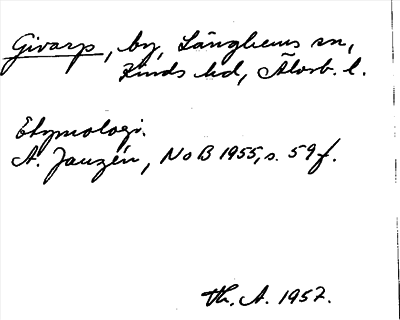 Givarp, by, Länghems sn,
Kinds hd, Älvsb. l.
Etymologi.
A. Janzén, NoB 1955, s. 59 f.
Th. A. 1957.